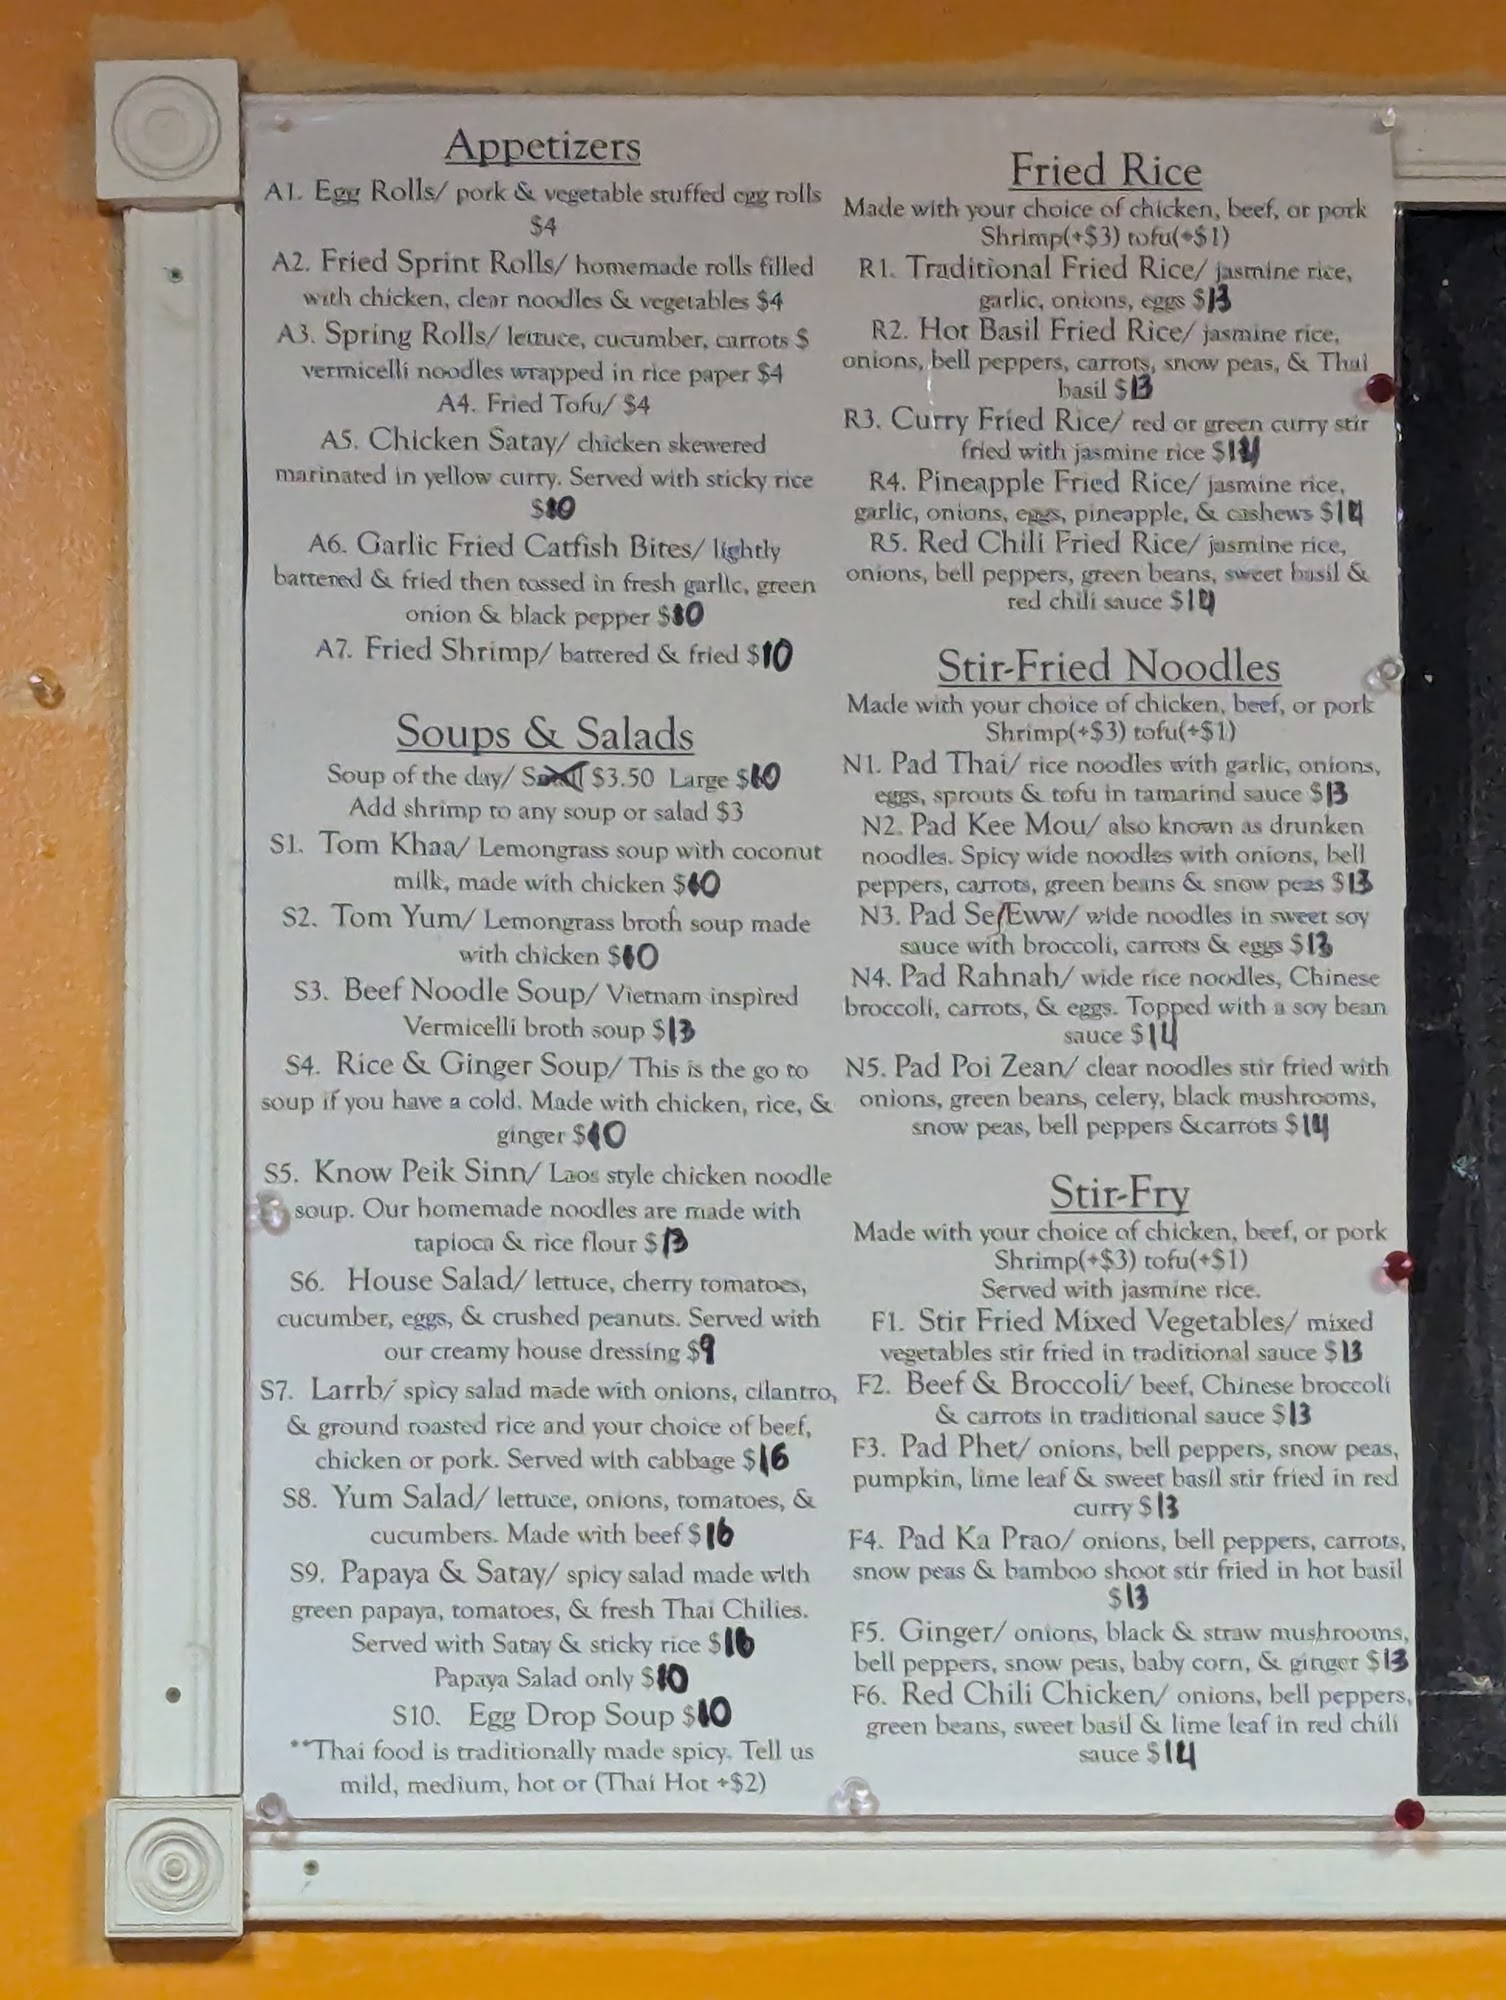 Appetizers
A1. Egg Rolls/ pork & vegetable stuffed egg rolls
$4
A2. Fried Sprint Rolls/ homemade rolls filled
with chicken, clear noodles & vegetables $4
A3. Spring Rolls/ lettuce, cucumber, carrots $
vermicelli noodles wrapped in rice paper $4
A4. Fried Tofu/ $4
A5. Chicken Satay/ chicken skewered
marinated in yellow curry. Served with sticky rice
$10
A6. Garlic Fried Catfish Bites/ lightly
battered & fried then tossed in fresh garlic, green
onion & black pepper $10
A7. Fried Shrimp/ battered & fried $10
Soups & Salads
Soup of the day/ Small $3.50 Large $10
Add shrimp to any soup or salad $3
S1. Tom Khaa/ Lemongrass soup with coconut
milk, made with chicken $10
S2. Tom Yum/ Lemongrass broth soup made
with chicken $10
S3. Beef Noodle Soup/ Vietnam inspired
Vermicelli broth soup $13
S4. Rice & Ginger Soup/ This is the go to
soup if you have a cold. Made with chicken, rice, &
ginger $10
S5. Know Peik Sinn/ Laos style chicken noodle
soup. Our homemade noodles are made with
tapioca & rice flour $13
S6. House Salad/ lettuce, cherry tomatoes,
cucumber, eggs, & crushed peanuts. Served with
our creamy house dressing $9
S7. Larrb/ spicy salad made with onions, cilantro,
& ground roasted rice and your choice of beef,
chicken or pork. Served with cabbage $16
S8. Yum Salad/ lettuce, onions, tomatoes, &
cucumbers. Made with beef $16
S9. Papaya & Satay/ spicy salad made with
green papaya, tomatoes, & fresh Thai Chilies.
Served with Satay & sticky rice $16
Papaya Salad only $10
S10. Egg Drop Soup $10
**Thai food is traditionally made spicy. Tell us
mild, medium, hot or (Thai Hot +$2)
Fried Rice
Made with your choice of chicken, beef, or pork
Shrimp(+$3) tofu(+$1)
R1. Traditional Fried Rice/ jasmine rice,
garlic, onions, eggs $13
R2. Hot Basil Fried Rice/ jasmine rice,
onions, bell peppers, carrots, snow peas, & Thai
basil $13
R3. Curry Fried Rice/ red or green curry stir
fried with jasmine rice $14
R4. Pineapple Fried Rice/ jasmine rice,
garlic, onions, eggs, pineapple, & cashews $14
R5. Red Chili Fried Rice/ jasmine rice,
onions, bell peppers, green beans, sweet basil &
red chili sauce $14
Stir-Fried Noodles
Made with your choice of chicken, beef, or pork
Shrimp(+$3) tofu(+$1)
N1. Pad Thai/ rice noodles with garlic, onions,
eggs, sprouts & tofu in tamarind sauce $13
N2. Pad Kee Mou/ also known as drunken
noodles. Spicy wide noodles with onions, bell
peppers, carrots, green beans & snow peas $13
N3. Pad Se/Eww/ wide noodles in sweet soy
sauce with broccoli, carrots & eggs $13
N4. Pad Rahnah/ wide rice noodles, Chinese
broccoli, carrots, & eggs. Topped with a soy bean
sauce $14
N5. Pad Poi Zean/ clear noodles stir fried with
onions, green beans, celery, black mushrooms,
snow peas, bell peppers &carrots $14
Stir-Fry
Made with your choice of chicken, beef, or pork
Shrimp(+$3) tofu(+$1)
Served with jasmine rice.
F1. Stir Fried Mixed Vegetables/ mixed
vegetables stir fried in traditional sauce $13
F2. Beef & Broccoli/ beef, Chinese broccoli
& carrots in traditional sauce $13
F3. Pad Phet/ onions, bell peppers, snow peas,
pumpkin, lime leaf & sweet basil stir fried in red
curry $13
F4. Pad Ka Prao/ onions, bell peppers, carrots,
snow peas & bamboo shoot stir fried in hot basil
$13
F5. Ginger/ onions, black & straw mushrooms,
bell peppers, snow peas, baby corn, & ginger $13
F6. Red Chili Chicken/ onions, bell peppers,
green beans, sweet basil & lime leaf in red chili
sauce $14